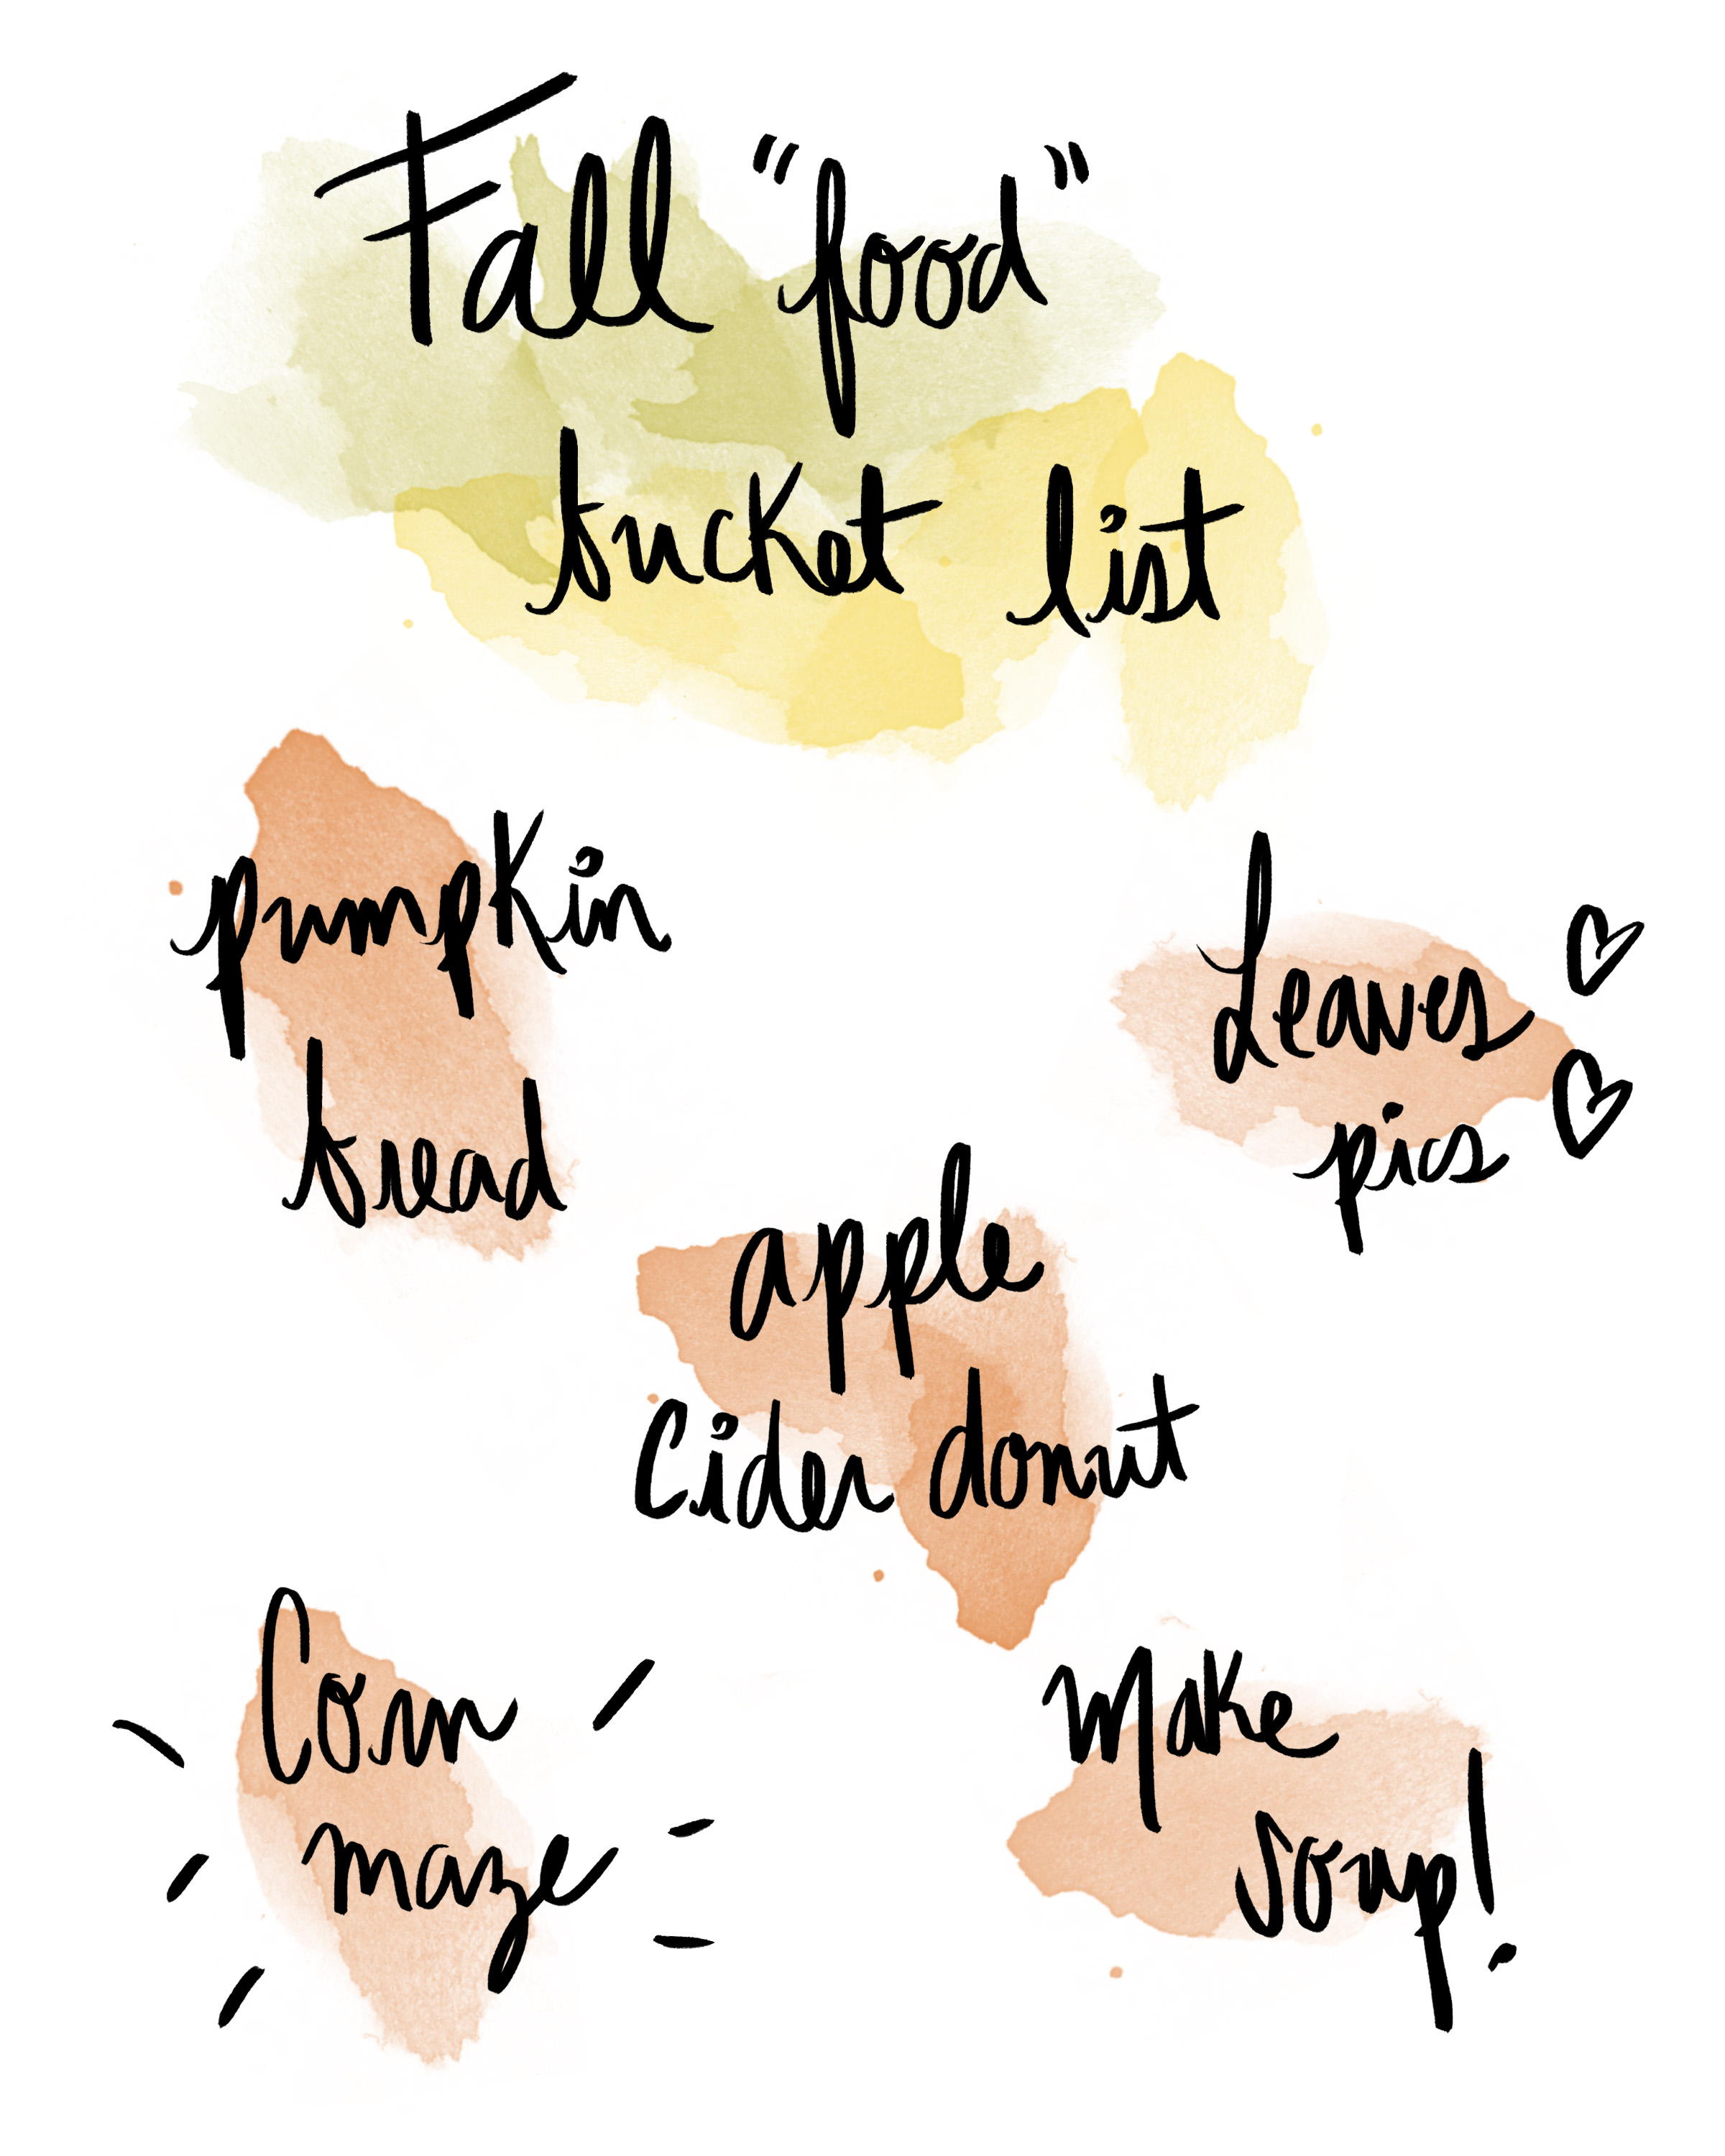 Fall "food"
bucket list
pumpkin
bread
Leaves
pics
apple
cider donut
Corn
maze
Make
soup!